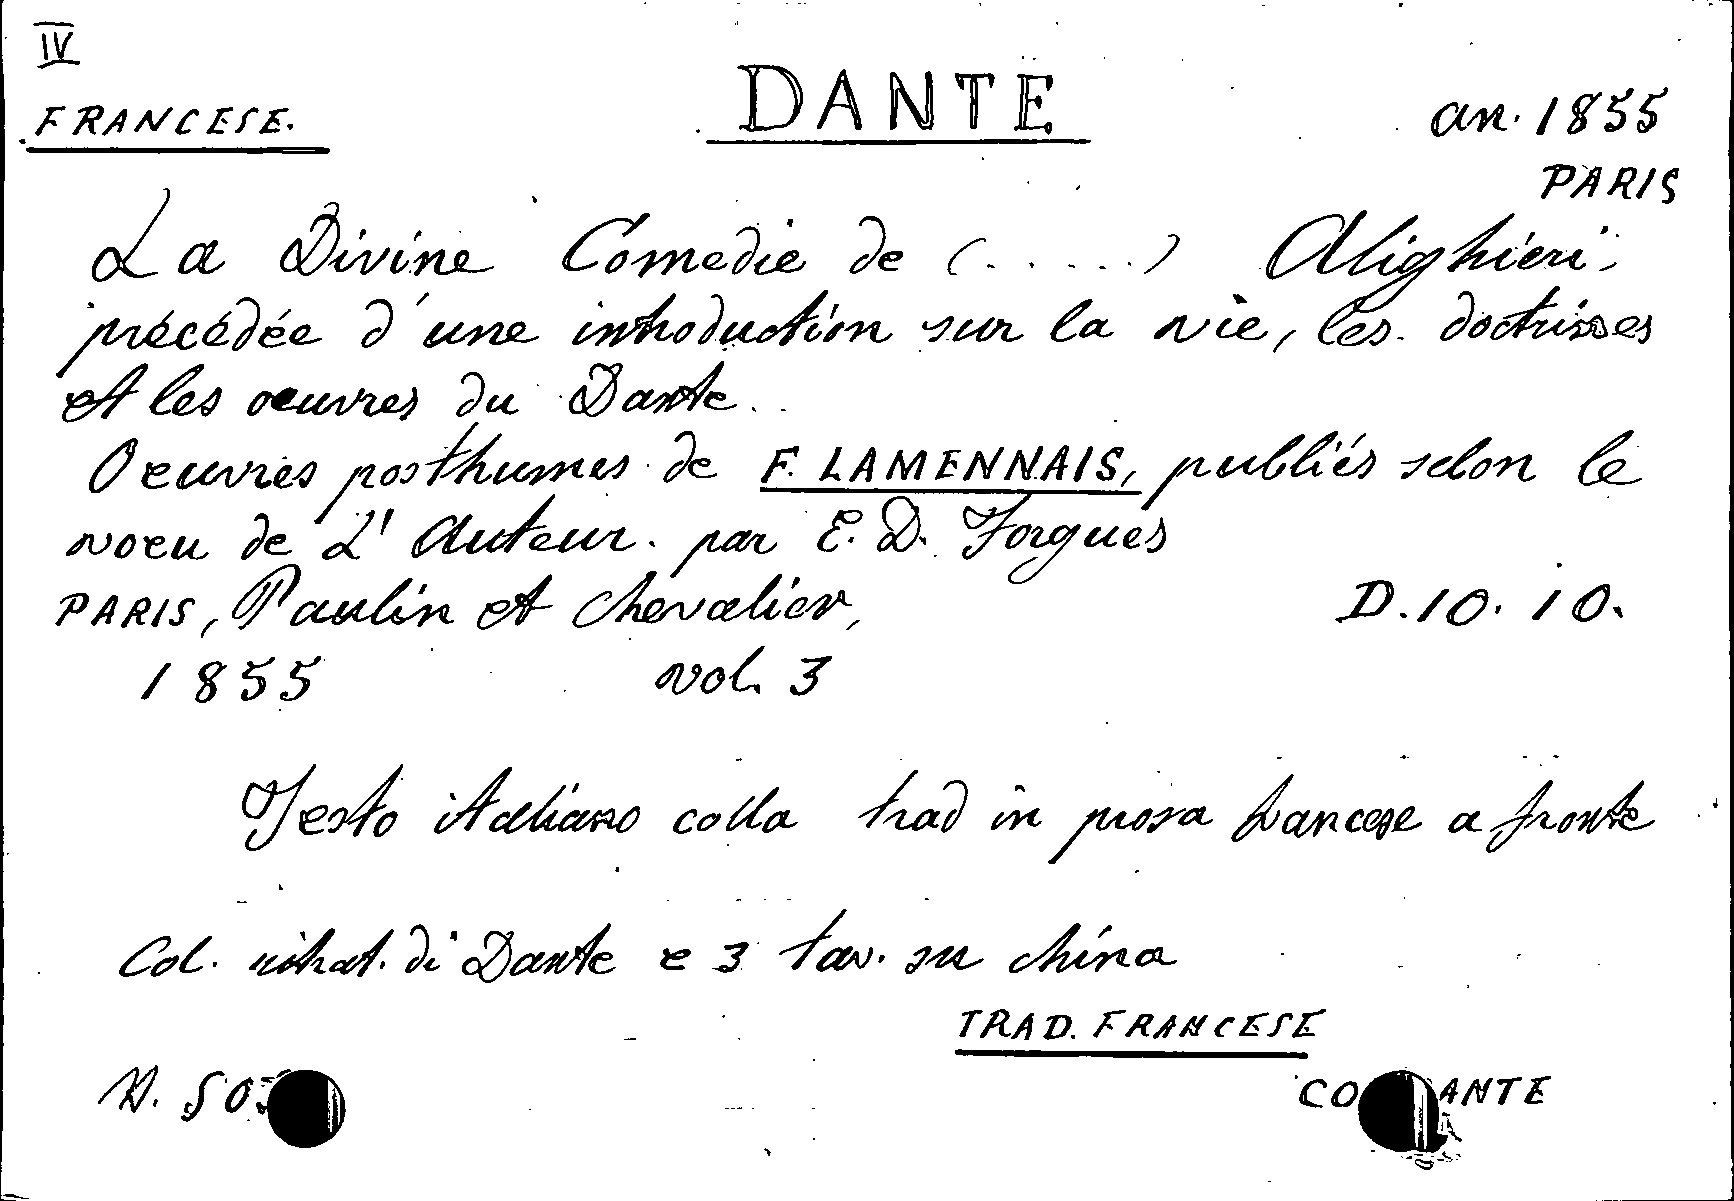 IV
FRANCESE.
DANTE
an. 1855
PARIS
La Divine Comedie de (.....) Alighieri,
précédée d'une introduction sur la vie, les doctrines
et les œuvres du Dante.
Oeuvres posthumes de F. LAMENNAIS, publiés selon le
voeu de L'Auteur. par E. D. Forgues
PARIS, Paulin et Chevalier,
D. 10. 10.
1855 vol. 3
Testo italiano colla trad in prosa francese a fronte
Col. ritrat. di Dante e 3 tav. su china
TRAD. FRANCESE
N. 50